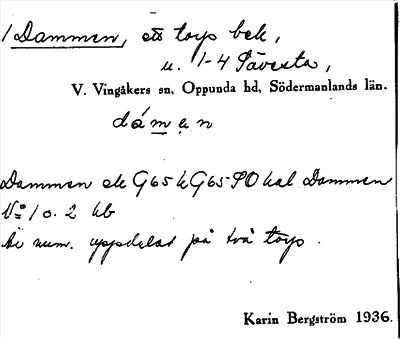 1 Dammen, ett torp bek,
u. 1-4 Sävesta,
V. Vingåkers sn, Oppunda hd, Södermanlands län.
dámen
Dammen ek G65 k G65 SO kal Dammen
No 1 o. 2 kb
Är num. uppdelat på två torp.
Karin Bergström 1936.